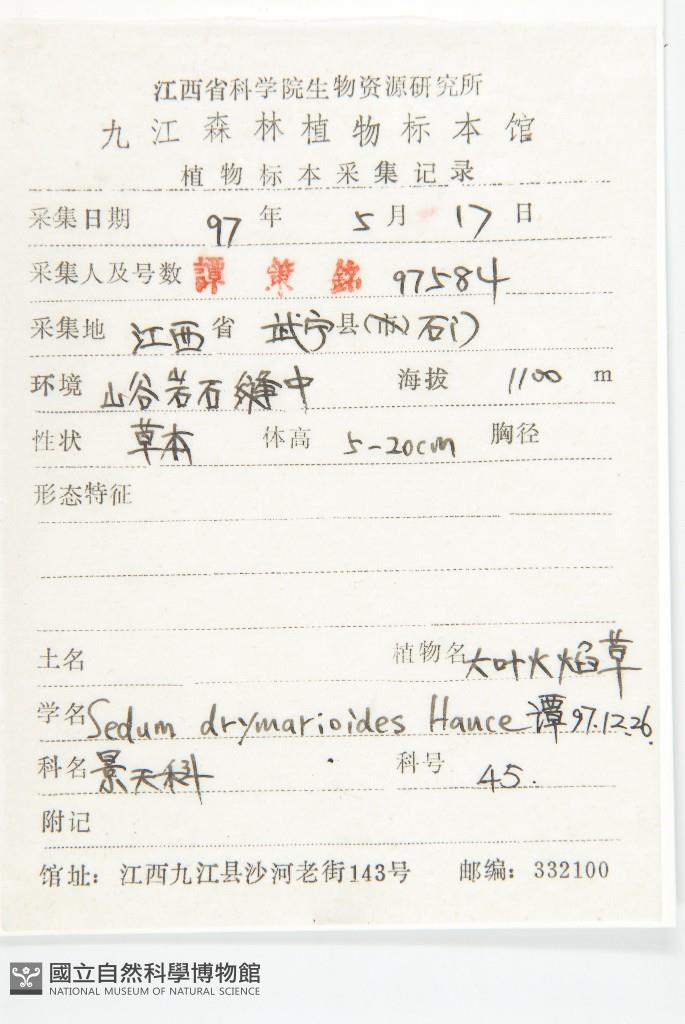 江西省科学院生物资源研究所
九江森林植物标本馆
植物标本采集记录
采集日期 97 年 5 月 17 日
采集人及号数 譚策銘 97584
采集地 江西 省 武宁 县(市) 石门
环境 山谷岩石缝中 海拔 1100 m
性状 草本 体高 5-20cm 胸径
形态特征
土名 植物名 大叶火焰草
学名 Sedum drymarioides Hance 谭 97.12.26.
科名 景天科 科号 45.
附记
馆址：江西九江县沙河老街143号 邮编：332100
國立自然科學博物館
NATIONAL MUSEUM OF NATURAL SCIENCE